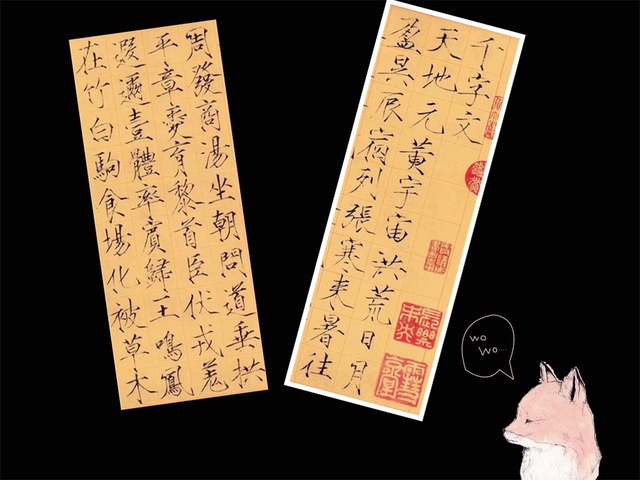 千字文
天地元黃宇宙洪荒日月
盈昃辰宿列張寒來暑往
周發商湯坐朝問道垂拱
平章愛育黎首臣伏戎羌
遐邇壹體率賓歸王鳴鳳
在竹白駒食場化被草木
wo
wo....